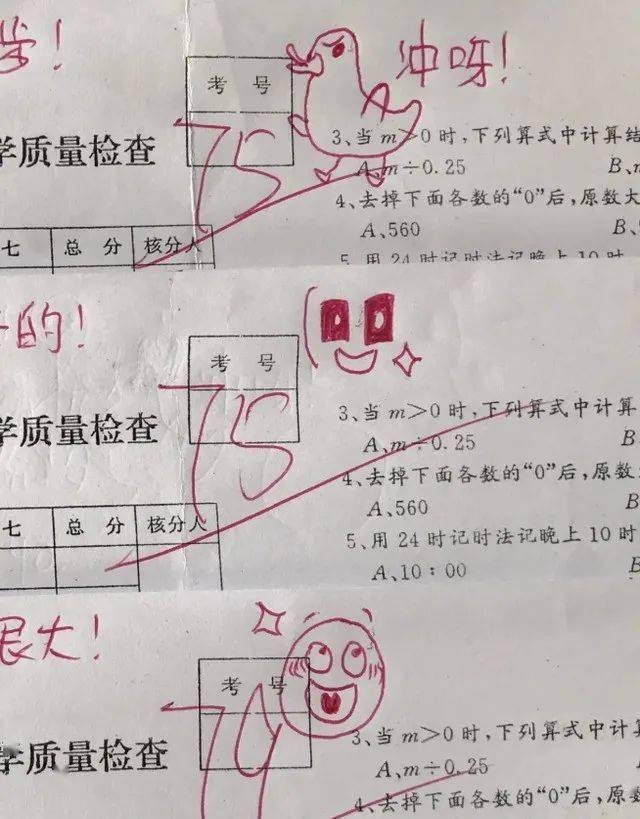 学！
冲呀！
考 号
75
学质量检查
七 总 分 核分人
3、当 m＞0 时，下列算式中计算结
A、m÷0.25 B、
4、去掉下面各数的“0”后，原数大
A、560 B、
5、用 24 时记时法记晚上 10 时
的！
考 号
75
学质量检查
七 总 分 核分人
3、当 m＞0 时，下列算式中计算
A、m÷0.25 B
4、去掉下面各数的“0”后，原数
A、560 B
5、用 24 时记时法记晚上 10 时
A、10：00 B
很大！
考 号
学质量检查
3、当 m＞0 时，下列算式中计算
A、m÷0.25
4、去掉下面各数的“0”后，原数